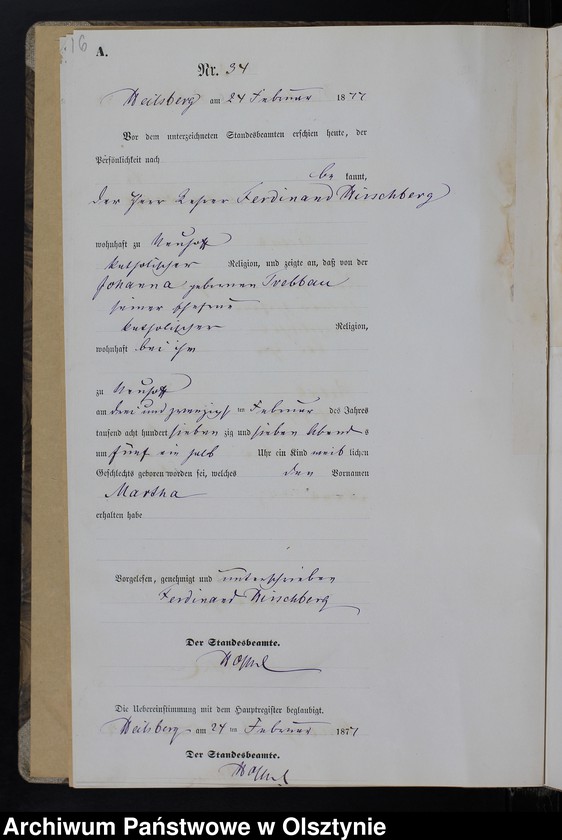 16
A.
Nr. 34
Heilsberg am 24 Februar 1877
Vor dem unterzeichneten Standesbeamten erschien heute, der
Persönlichkeit nach
be kannt,
der Herr Lehrer Ferdinand Hirschberg
wohnhaft zu Neuhoff
katholischer Religion, und zeigte an, daß von der
Johanna geborenen Trebbau
seiner Ehefrau
katholischer Religion,
wohnhaft bei ihm
zu Neuhoff
am drei und zwanzigsten Februar des Jahres
tausend acht hundert sieben zig und sieben Abend s
um fünf ein halb Uhr ein Kind weib lichen
Geschlechts geboren worden sei, welches den Vornamen
Martha
erhalten habe
Vorgelesen, genehmigt und unterschrieben
Ferdinand Hirschberg
Der Standesbeamte.
Die Uebereinstimmung mit dem Hauptregister beglaubigt.
Heilsberg am 24 ten Februar 1877
Der Standesbeamte.
Archiwum Państwowe w Olsztynie